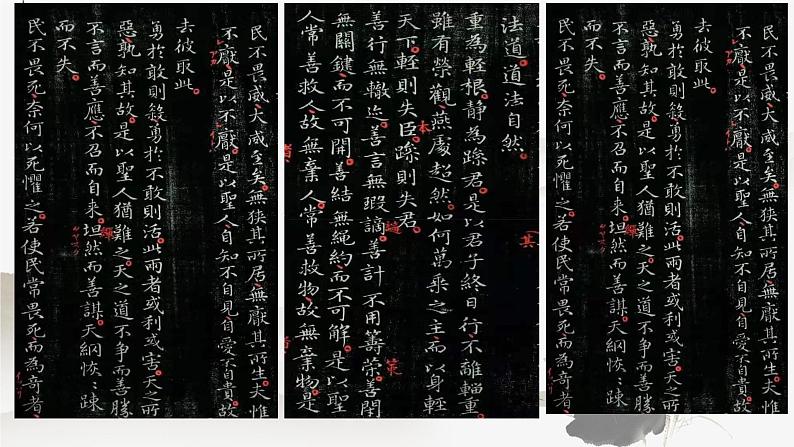 民不畏威大威至矣。無狹其所居無厭其所生夫惟
不厭是以不厭。是以聖人自知不自見自愛不自貴故
去彼取此。
勇於敢則殺勇於不敢則活此兩者或利或害。天之所
惡孰知其故。是以聖人猶難之。天之道不爭而善勝
不言而善應不召而自來。坦然而善謀。天網恢〻踈
繟
而不失。
民不畏死奈何以死懼之。若使民常畏死而為奇者
法道。道法自然。
其
重為輕根靜為躁君。是以君子終日行不離輜重。
雖有榮觀燕處超然。如何萬乘之主而以身輕
天下。輕則失臣。躁則失君。
本
善行無轍迹。善言無瑕謫。善計不用籌筞。善閇
策
無關鍵而不可開。善結無繩約而不可解。是以聖
人常善救人。故無棄人。常善救物。故無棄物。是
民不畏威大威至矣。無狹其所居無厭其所生夫惟
不厭是以不厭。是以聖人自知不自見自愛不自貴故
去彼取此。
勇於敢則殺勇於不敢則活此兩者或利或害。天之所
惡孰知其故。是以聖人猶難之。天之道不爭而善勝
不言而善應不召而自來。坦然而善謀。天網恢〻踈
繟
而不失。
民不畏死奈何以死懼之。若使民常畏死而為奇者